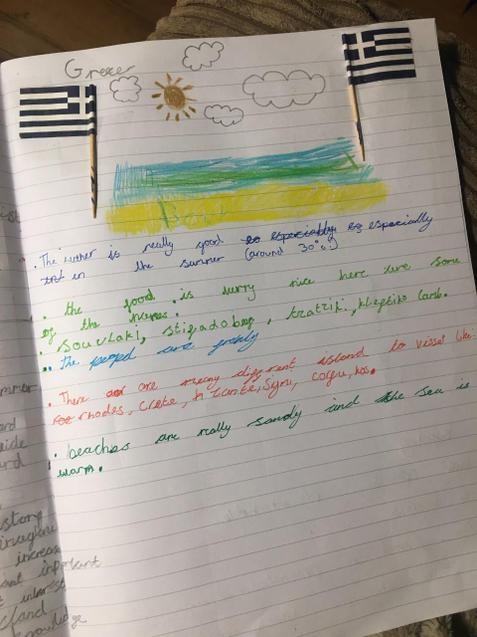 Greece
• The wether is really good so especially es especially
in the summer (around 30°c!)
• the food is purry nice here are some
of the memes.
• souvlaki, stifado beef, tzatziki, kleptiko lamb.
• the peopel are frenly
• There are meany diffrent island to vissel like:
rhodes, Crete, Zante, Symi, corfu, kos.
• beaches are really sandy and the sea is
warm.
mmer
ard
uide
urd
story
increase
inportant
interest
knowledge